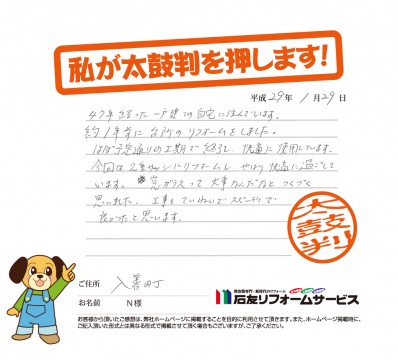 私が太鼓判を押します!
平成29年 1月29日
47年経った一戸建の自宅に住んでいます。
約1年前に台所のリフォームをしました。
ほぼ予定通りの工期で終了し、快適に使用しています。
今回は2重サッシにリフォームし、やはり快適に過ごして
います。窓ガラスって大事なんだなとつくづく
思いました。工事もていねいでスピーディで
良かったと思います。
太鼓判
ご住所 入善町
お名前 N様
石友リフォームサービス
お客様から頂いたご感想は、弊社ホームページに掲載することを目的に使用させて頂きます。また、ホームページ掲載時に、
ご記入頂いた形式とは異なる形式で掲載させて頂く場合もございますが、ご了承ください。